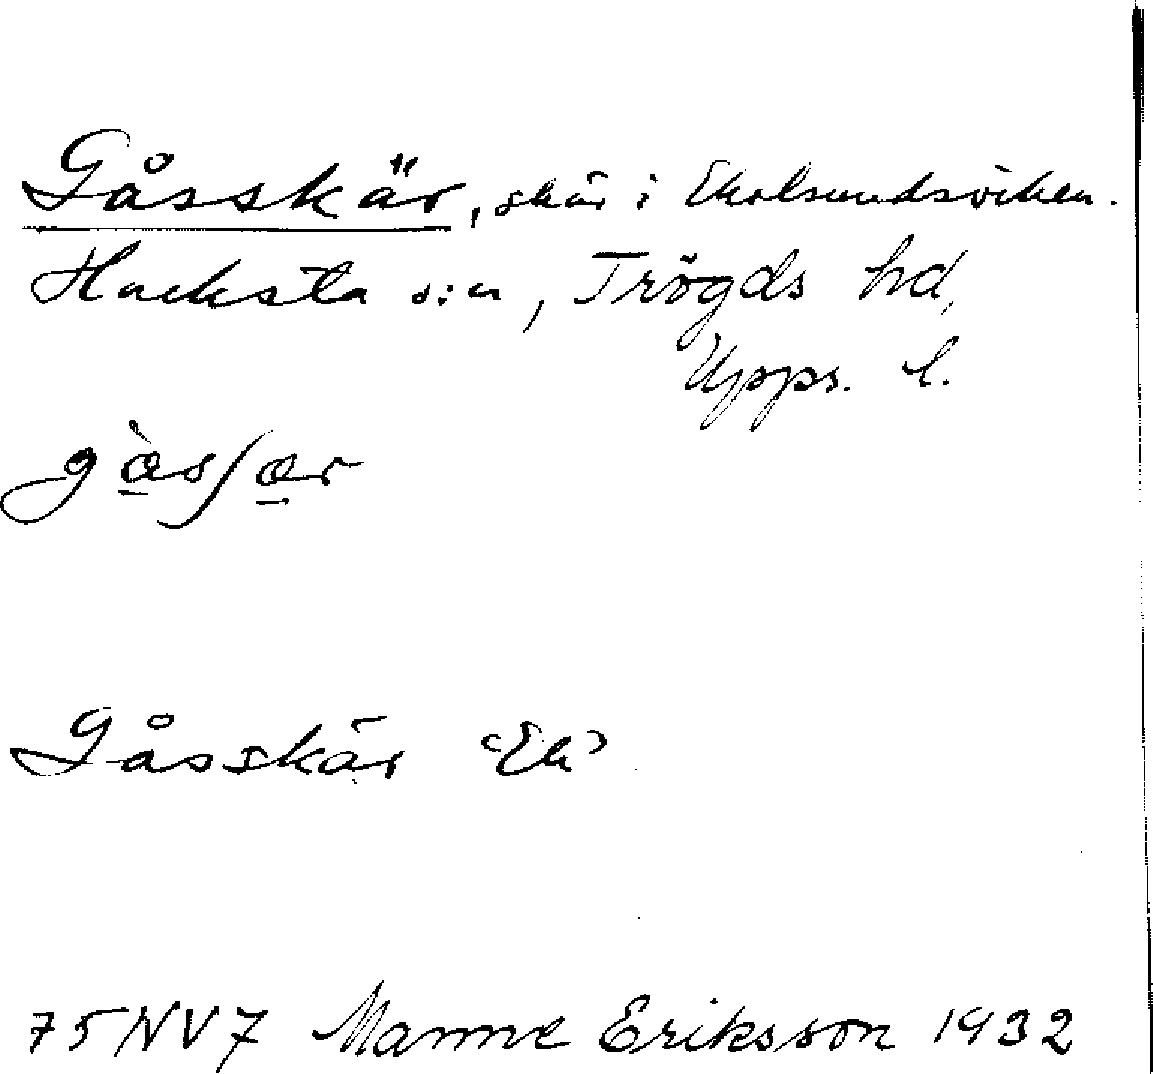 Gåsskär, skär i Ekolsundsviken.
Hacksta s:n, Trögds hd,
Upps. l.
Gåsskär Ek
75NV7 Manne Eriksson 1932